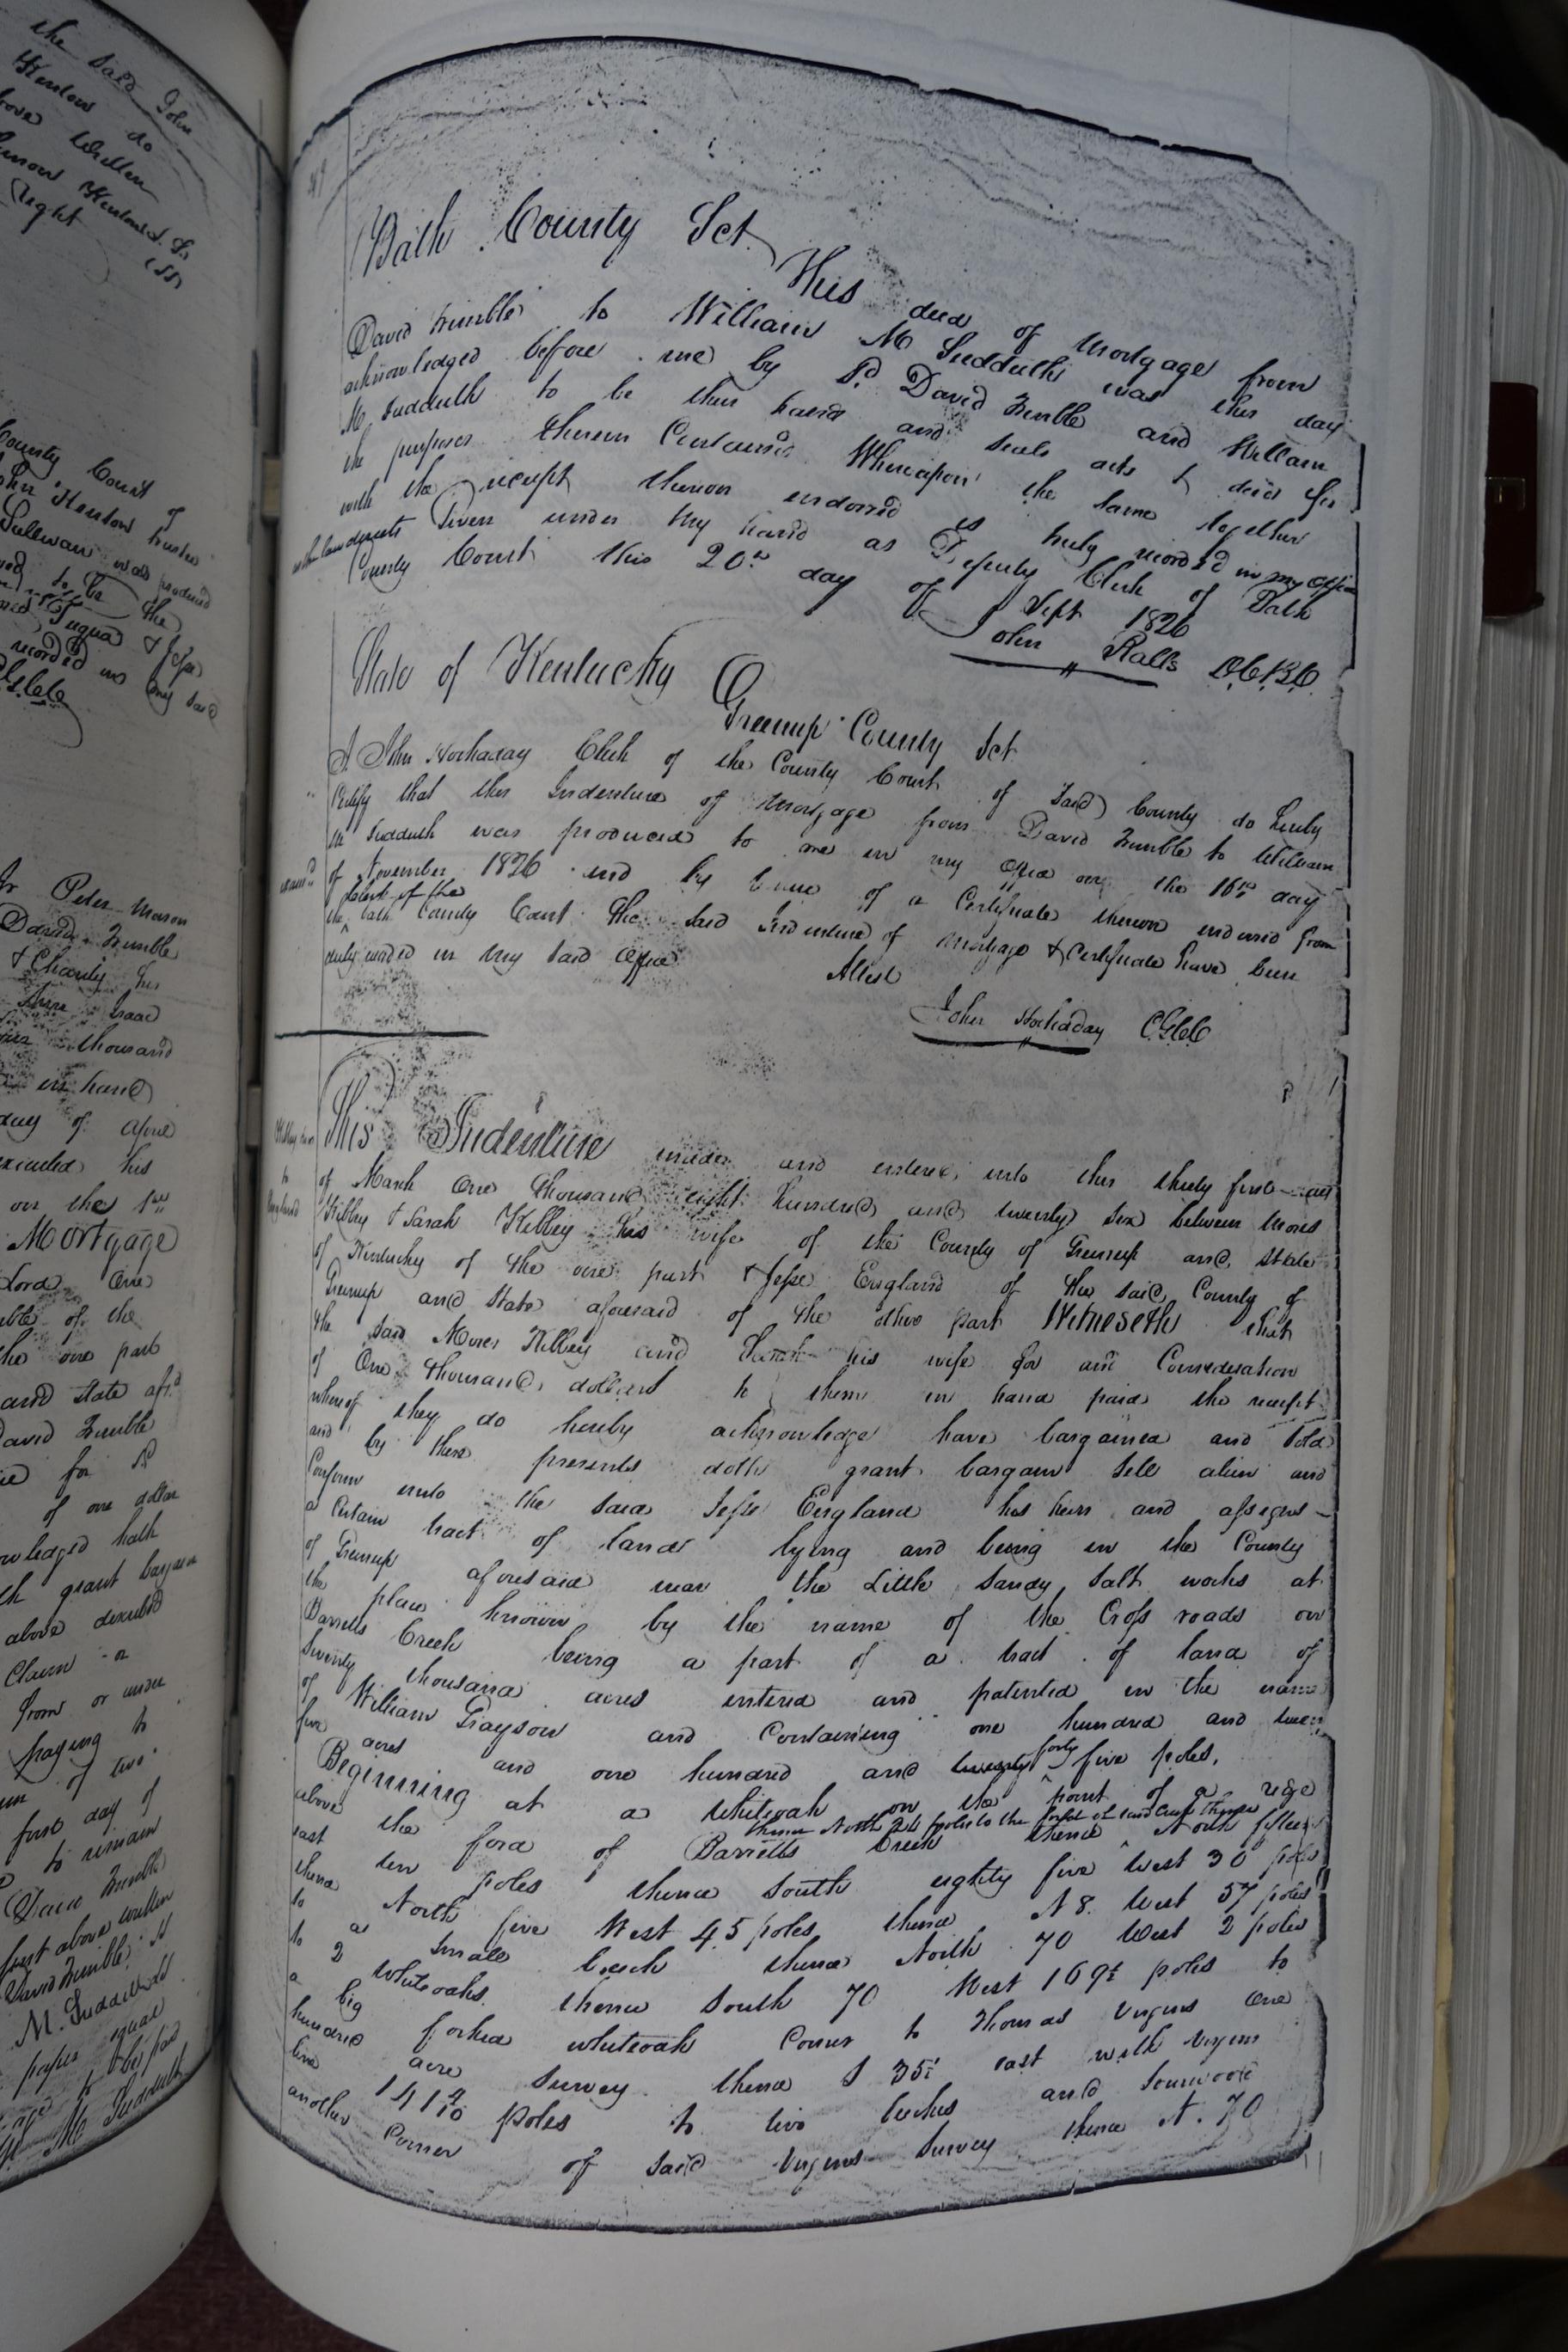 the said John
Henlow do
above Written
(Seal)
County Court of
John Henlow trustee
Sullivan was produced
to be the
Fuqua & Jesse
recorded in my said
Peter Mason
David Trimble
& Charity his
Isaac
thousand
in hand
day of April
executed his
on the 1st
Mortgage
Lord One
of the
the one part
and state afsd
David Trimble
for sd
of one dollar
hath
grant bargain
above described
Claim or
from or under
paying to
of two
first day of
to remain
David Trimble
first above written
David Trimble
M. Sudduth
M Sudduth
Bath County Sct
This deed of Mortgage from
David Trimble to William M Sudduth was this day
acknowledged before me by Sd David Trimble and William
M Sudduth to be their hands and seals acts & deeds for
the purposes therein Contained Whereupon the same together
with the receipt thereon endorsed is truly recorded in my office
Given under my hand as Deputy Clerk of Bath
County Court this 20th day of Sept 1826
John Ralls D.C.B.C.
State of Kentucky
Greenup County Sct
I John Hockaday Clerk of the County Court of said County do hereby
Certify that this Indenture of Mortgage from David Trimble to William
M Sudduth was produced to me in my office on the 16th day
of November 1826 and by virtue of a Certificate thereon endorsed from
the Clerk of the Bath County Court the said Indenture of Mortgage & Certificate have been
duly recorded in my said office
Attest
John Hockaday CGCC
Kibbey &c
to
England
This Indenture made and entered into this thirty first day
of March One thousand eight hundred and twenty six between Moses
Kibbey & Sarah Kibbey his wife of the County of Greenup and state
of Kentucky of the one part & Jesse England of the said County of
Greenup and state aforesaid of the other part Witnesseth that
the said Moses Kibbey and Sarah his wife for and Consideration
of One thousand dollars to them in hand paid the receipt
whereof they do hereby acknowledge have bargained and sold
and by these presents doth grant bargain sell alien and
Confirm unto the said Jesse England his heirs and assigns
a Certain tract of land lying and being in the County
of Greenup aforesaid near the Little Sandy Salt works at
the place known by the name of the Cross roads on
Barretts Creek being a part of a tract of land of
Seventy thousand acres entered and patented in the name
of William Grayson and Containing one hundred and twenty
five acres and one hundred and twenty forty five poles,
Beginning at a whiteoak on the point of a ridge
above the ford of Barretts Creek thence North 24 poles to the forks of said Creek Thence North fifteen
east ten poles thence South eighty five West 30 poles
thence North five West 45 poles thence N 8. West 57 poles
to a small beech thence North 70 West 2 poles
to 2 whiteoaks. thence South 70 West 169½ poles to
a big forked whiteoak Corner to Thomas Virgins One
hundred acre survey. thence S 35 east with Virgins
line 141 4/10 poles to two beeches and sourwood
another Corner of said Virgins Survey thence N. 70